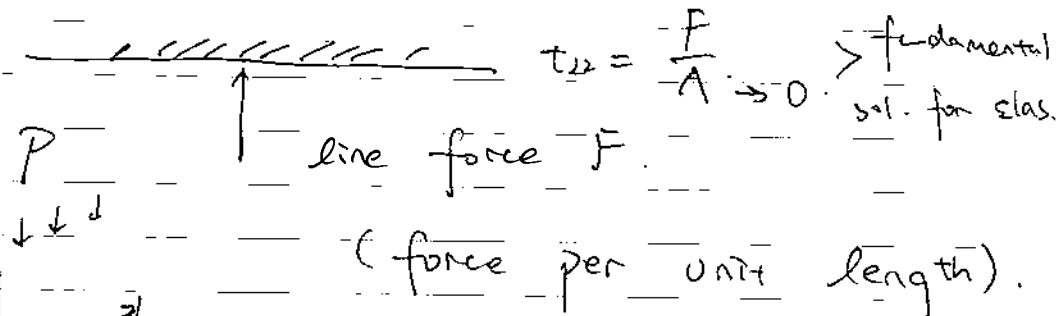 t₂₂ = F/A → 0 > fundamental
sol. for elas.
P line force F.
(force per unit length).